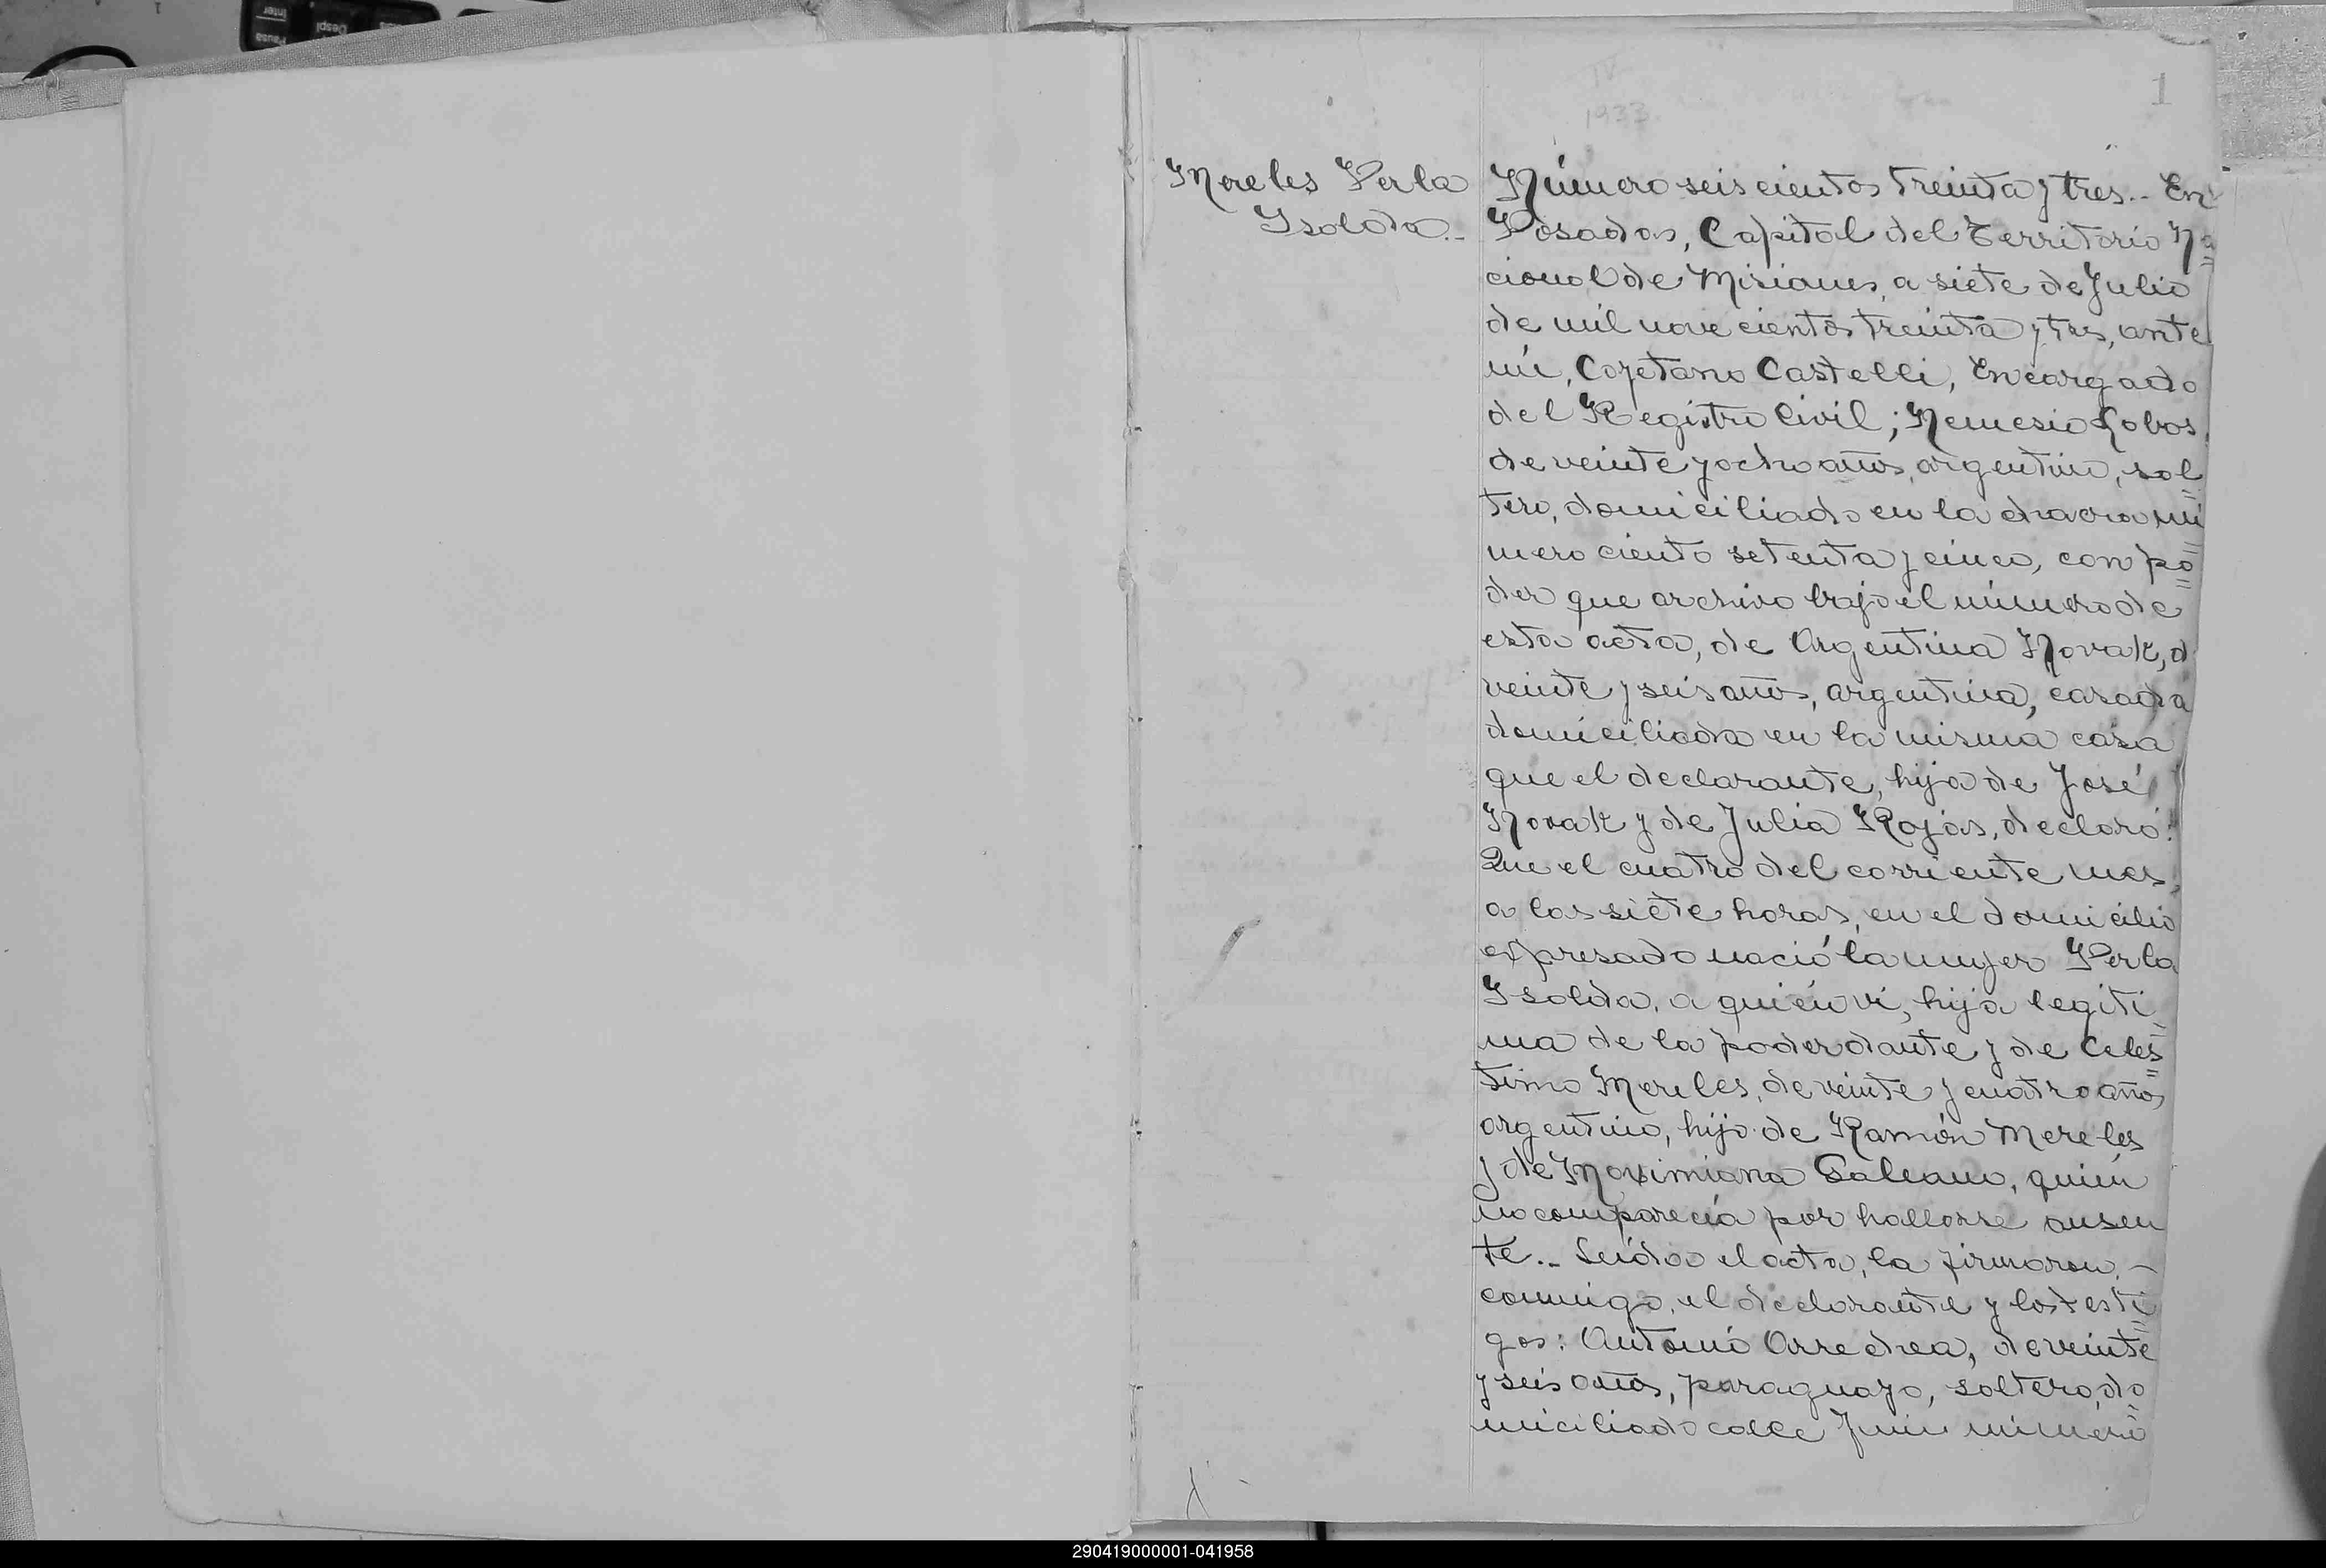 1
IV
1933
Mereles Perla
Isolda.-
Número seiscientos treinta y tres.- En
Posadas, Capital del Territorio Na
cional de Misiones, a siete de Julio
de mil novecientos treinta y tres, ante
mí, Cayetano Castelli, Encargado
del Registro Civil; Nemesio Lobos,
de veinte y ocho años, argentino, sol
tero, domiciliado en la chacra nú
mero ciento setenta y cinco, con po
der que archivo bajo el número de
esta acta, de Argentina Novak, d
veinte y seis años, argentina, casada
domiciliada en la misma casa
que el declarante, hija de José
Novak y de Julia Rojas, declaró:
Que el cuatro del corriente mes,
a las siete horas, en el domicilio
expresado nació la mujer Perla
Isolda, a quién ví, hija legíti
ma de la poderdante y de Celes
timo Mereles, de veinte y cuatro años,
argentino, hijo de Ramón Mereles
y de Maximiana Galeano, quién
no comparecía por hallarse ausen
te.- Leída el acta, la firmaron.-
conmigo, el declarante y los testi
gos: Antonio Arrechea, de veinte
y seis años, paraguayo, soltero, do
miciliado calle Junín número
290419000001-041958